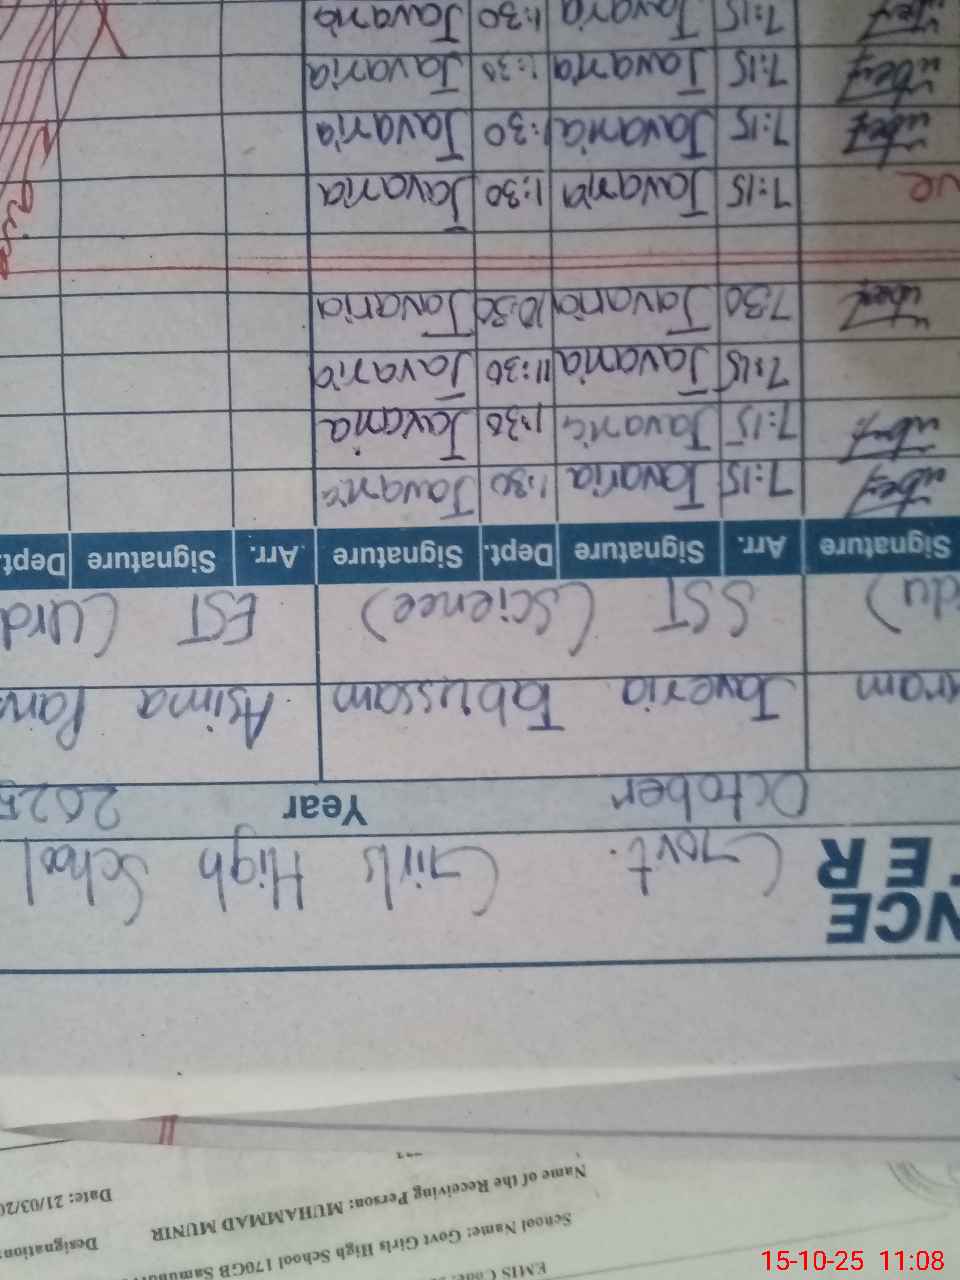 EMIS Code:
School Name: Govt Girls High School 170GB Designation:
Name of the Receiving Person: MUHAMMAD MUNIR Date: 21/03/20
NCE
TER Govt. Girls High School
October Year 2025
ram Javeria Tabussam Asima Parv
du) SST (Science) EST (Urd
Signature Arr. Signature Dept. Signature Arr. Signature Dept.
7:15 Javaria 1:30 Javaria
7:15 Javaria 1:30 Javaria
7:15 Javaria 11:30 Javaria
7:30 Javaria 10:30 Javaria
ve 7:15 Javaria 1:30 Javaria
7:15 Javaria 1:30 Javaria
7:15 Javaria 1:30 Javaria
7:15 Javaria 1:30 Javaria
15-10-25 11:08